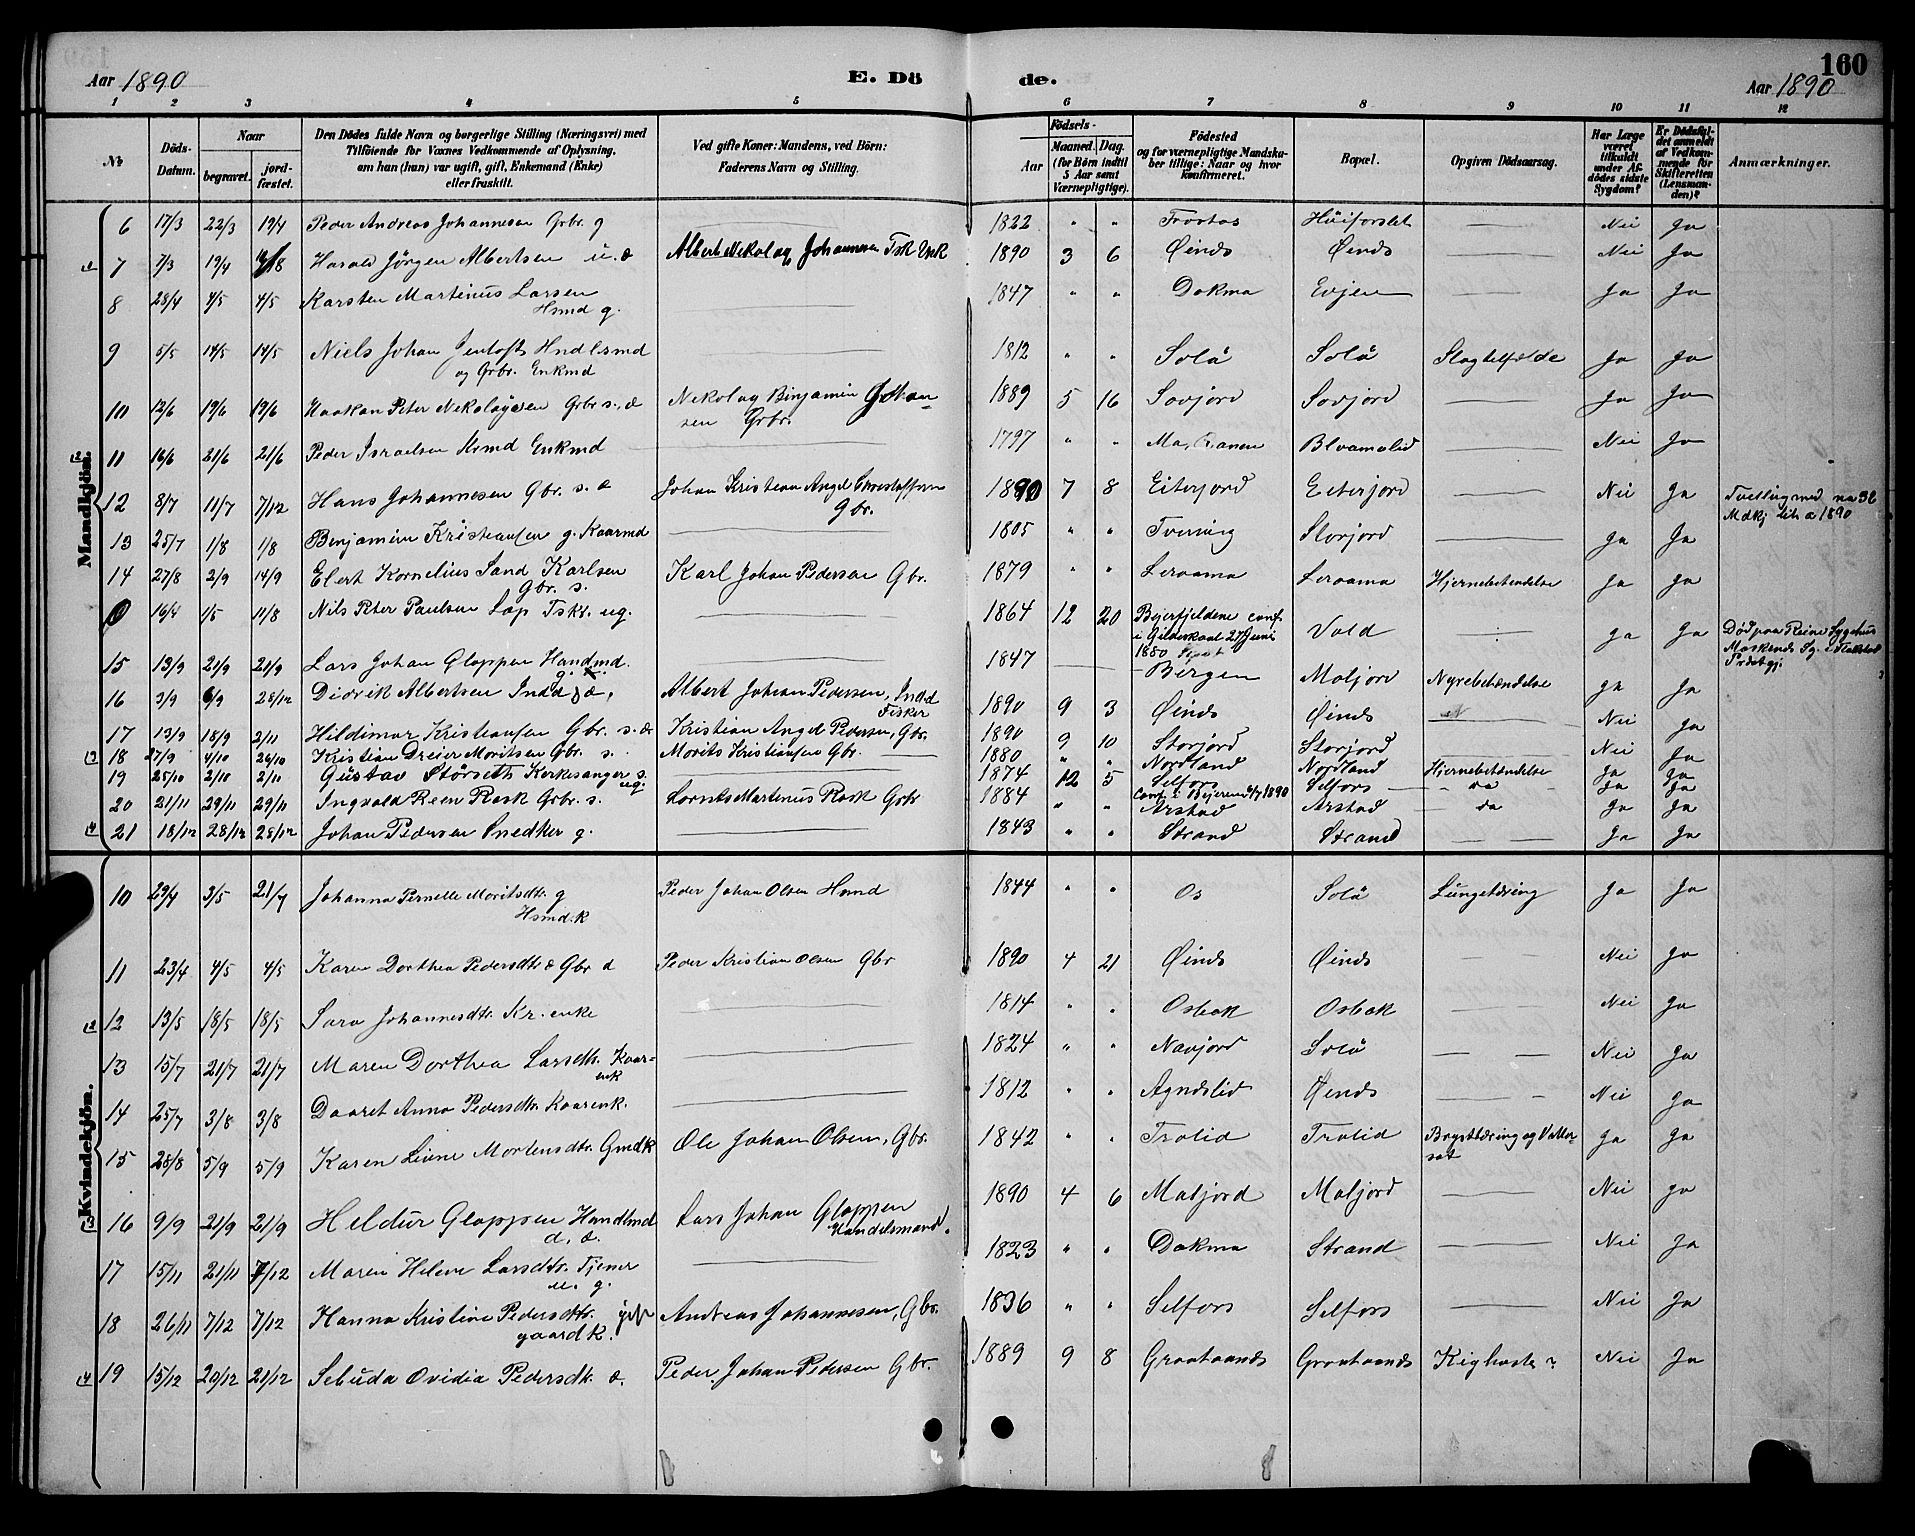 Aar 1890 E. Dö de. Aar 1890 160
1 2 3 4 5 6 7 8 9 10 11 12
No
Döds-Datum.
Naar
begravet.
jord-fæstet.
Den Dödes fulde Navn og borgerlige Stilling (Næringsvei) med
Tilföiende for Voxnes Vedkommende af Oplysning,
om han (hun) var ugift, gift, Enkemand (Enke)
eller fraskilt.
Ved gifte Koner: Mandens, ved Börn:
Faderens Navn og Stilling.
Födsels-
Aar
Maaned. Dag.
(for Börn indtil
5 Aar samt
Værnepligtige).
Födested
og for værnepligtige Mandska-
ber tillige: Naar og hvor
konfirmeret.
Bopæl.
Opgiven Dödsaarsag.
Har Læge
været
tilkaldt
under Af-
dödes sidste
Sygdom?
Er Dödsfal-
det anmeldt
af Vedkom-
mende for
Skifteretten
(Lensman-
den)?
Anmærkninger.
Mandkjön.
6 17/3 22/3 19/4 Peder Andreas Johannesen Grbr. g 1822 " " Trostas Nei Ja
7 7/3 19/4 Harald Jörgen Albertsen u. æ Albert Nekolay Johannesen Fsk Enk 1890 3 6 Öinds Öinds Nei Ja
8 28/4 4/5 4/5 Karsten Martinus Larsen 1847 " " Dokma Evjen Ja Ja
Hsmd g.
9 5/5 14/5 14/5 Niels Johan Jentoft Hndlsmd 1812 " " Solö Solö Slagtilfælde Ja Ja
og Grbr. Enkmd
10 12/6 19/6 19/6 Haakon Peter Nekolaysen Grbr s., æ Nekolay Binjamin Johan- 1889 5 16 Sovjord Sovjord Ja Ja
sen Grbr.
11 16/6 21/6 21/6 Peder Israelsen Hsmd Enkmd 1797 " " Mo, Ranen Blaamolid Nei Ja
12 8/7 11/7 7/12 Hans Johannesen Gbr. s. æ Johan Kristian Angel Christoffersen 1890 7 8 Eiterjord Eiterjord Nei Ja Tvilling med no 32
Gbr. Mdkj lit. a 1890
13 25/7 1/8 1/8 Benjamin Kristiansen g. Kaarmd 1805 " " Tverning Storjord Ja Ja
14 27/8 2/9 14/9 Elert Kornelius Sand Karlsen Karl Johan Pedersen Gbr. 1879 " " Leraama Leraama Hjernebetændelse Ja Ja
Gbr. s.
16/4 1/5 11/8 Nils Peter Paulsen Lap Fskr. ug. 1864 12 20 Beierfjeldene conf. Vold Ja Ja Död paa Reine Sygehus
i Gildeskaal 27 Juni
1880
15 13/9 21/9 21/9 Lars Johan Gloppen Handmd. 1847 Bergen Moljord Nyrebetændelse Ja Ja
g.
16 3/9 6/9 28/12 Didrik Albertsen Indd æ. Albert Johan Pedersen, Indd 1890 9 3 Öinds Öinds Nei Ja
Fisker
17 13/9 18/9 2/11 Hildimar Kristiansen Gbr. s. æ Kristian Angel Pedersen, Gbr. 1890 9 10 Storjord Storjord Nei Ja
18 27/9 4/10 26/10 Kristian Dreier Moritsen Gbr. s. Morits Kristiansen Gbr. 1880 " " Nordland Nordland Hjernebetændelse Ja Ja
19 25/10 2/11 2/11 Gustav Störseth Kirkesanger s. ug. 1874 12 5 Selfors Selfors da Ja Ja
Conf. i Beieren 6/7 1890
20 21/11 29/11 29/11 Ingvald Reen Rosk Grbr. s. Lornts Martinus Rosk Grbr 1884 " " Arstad Arstad da Ja Ja
21 18/12 28/12 28/12 Johan Pedersen Snedker g. 1843 " " Strand Strand Ja Ja
Kvindekjön.
10 29/4 3/5 21/7 Johanna Pernelle Moritsdtr. g Peder Johan Olsen Hsmd 1844 " " Os Solö Lungetæring Ja Ja
Hsmd.k
11 23/4 4/5 4/5 Karen Dorthea Pedersdtr æ Gbr d Peder Kristian Olsen Gbr 1890 4 21 Öinds Öinds Nei Ja
12 13/5 18/5 18/5 Sara Johannesdtr. Kr. enke 1814 " " Osbak Osbak Nei Ja
13 15/7 21/7 21/7 Maren Dorthea Larsdtr. Kaar- 1824 " " Navjord Solö Nei Ja
enk
14 25/7 3/8 3/8 Daaret Anna Pedersdtr. Kaarenk. 1812 " " Agndslid Öends Nei Ja
15 28/8 5/9 5/9 Karen Liene Mortensdtr. Gmdk Ole Johan Olsen, Gbr. 1842 " " Trolid Trolid Brysttæring og Vatter- Ja Ja
sot
16 9/9 21/9 21/9 Heldur Gloppen Handlmd Lars Johan Gloppen 1890 4 6 Moljord Moljord Nei Ja
d. æ. Handelsmand.
17 15/11 21/11 7/12 Maren Helene Larsdtr. Tjener 1823 " " Dokmo Strand Nei Ja
u. g.
18 26/11 7/12 7/12 Hanna Kristine Pedersdtr. gift Andreas Johannesen, Gbr. 1836 " " Selfors Selfors Nei Ja
gaardk.
19 15/12 20/12 21/12 Sebuda Ovidia Pedersdtr. æ. Peder Johan Pedersen Gbr. 1889 9 8 Graataands Graataands Kighoste ? Nei Ja